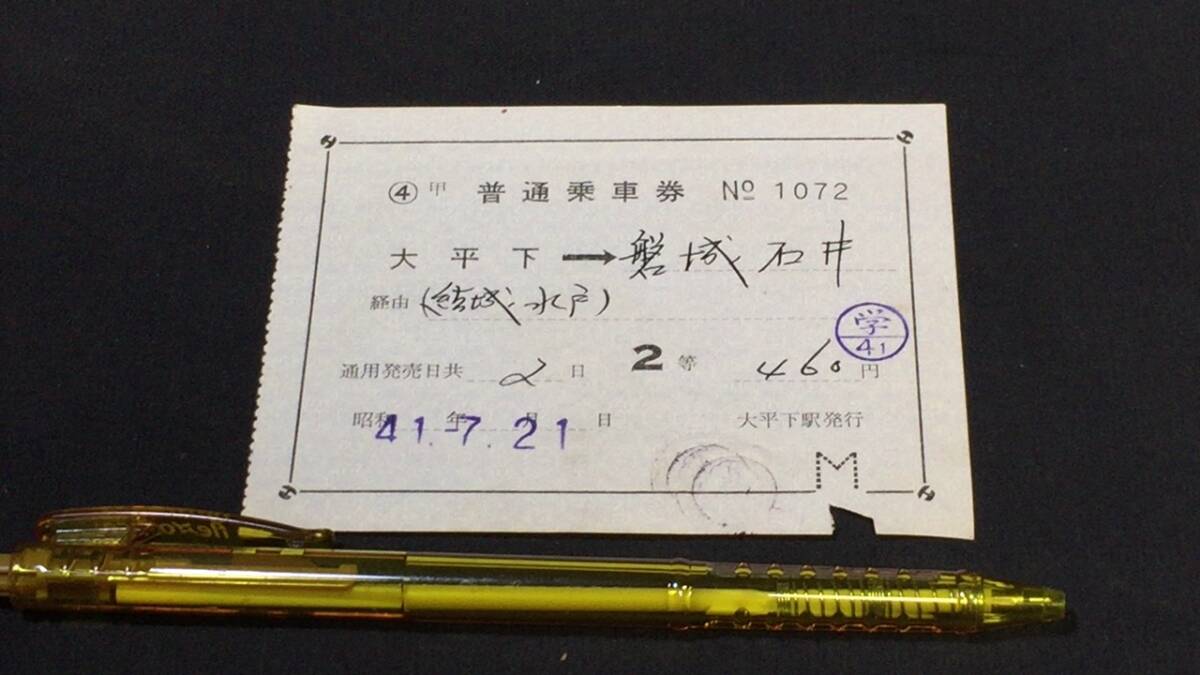 ④ 甲 普通乗車券 Nº 1072
大平下 → 磐城石井
経由 (結城、水戸)
学
41
通用発売日共 2 日 2 等 460 円
昭和 年 月 日 大平下駅発行
41.-7.21